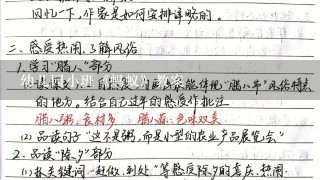 回忆一下,作家是如何安排详略的。
二、感受热闹,了解风俗
1.学习“腊八”部分
幼儿园小班《蚂蚁》教案
能体现“腊八节”风俗特点
的地方。结合自己过年的感受作批注
腊八粥:食材多 腊八蒜:色味双美
(2)品读句子“这不是粥,而是小型的农业产品展览会”
2.品读“除夕”部分
(1)抓关键词“赶做,到处”等感受除夕的喜庆、热闹